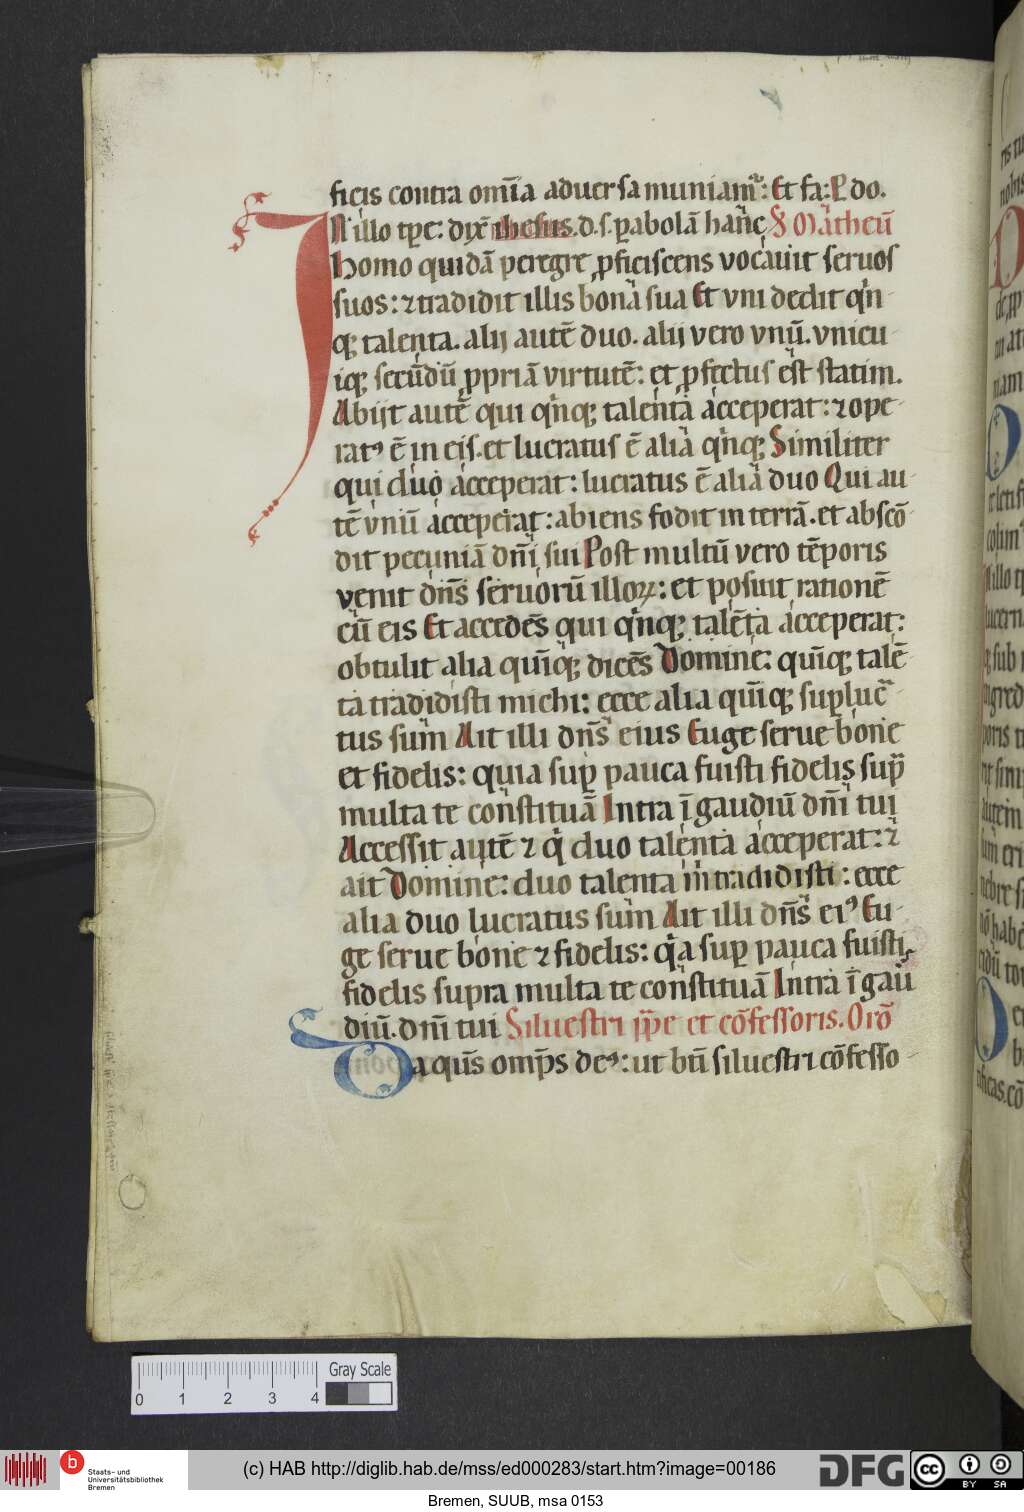 ficis contra om̄ia aduersa muniam᷑: Et fa: P do.
IN illo tp̄e: dix̄ ihesus.d.s.p̱abolā hanc S Matheū
Homo quidā peregre ꝓficiscens vocauit seruos
suos: ⁊ tradidit illis bona sua Et vni dedit qͥn-
qꝫ talenta. alij autē duo. alij vero vnū. vnicu-
iqꝫ secūdū ꝓpriā virtutē: et ꝓfectus est statim.
Abijt autē qui qͥnqꝫ talenta acceperat: ⁊ ope-
ratꝰ ē in eis. et lucratus ē alia qͥnqꝫ Similiter
qui duo acceperat: lucratus ē alia duo Qui au-
tē vnū acceperat: abiens fodit in terrā. et abscō-
dit pecuniā dn̄i sui Post multū vero tēporis
venit dn̄s seruorū illoꝝ: et posuit rationē
cū eis Et accedēs qui qͥnqꝫ talēta acceperat:
obtulit alia quīqꝫ dicēs Domine: quīqꝫ talē-
ta tradidisti michi: ecce alia quīqꝫ suꝑluc̄-
tus sum Ait illi dn̄s eius Euge serue bone
et fidelis: quia suꝑ pauca fuisti fidelis suꝑ
multa te constituā Intra ī gaudiū dn̄i tui
Accessit autē ⁊ qͥ duo talenta acceperat: ⁊
ait Domine: duo talenta m̄ tradidisti: ecce
alia duo lucratus sum Ait illi dn̄s eiꝰ Eu-
ge serue bone ⁊ fidelis: qͥa suꝑ pauca fuisti
fidelis supra multa te constituā Intra ī gau
diū. dn̄i tui Siluestri pp̄e et cōfessoris. Orō
Da qus̄ omp̄s deꝰ: ut btī siluestri cōfesso-
0 1 2 3 4
Gray Scale
b
Staats- und
Universitätsbibliothek
Bremen
(c) HAB http://diglib.hab.de/mss/ed000283/start.htm?image=00186
DFG
cc BY SA
Bremen, SUUB, msa 0153